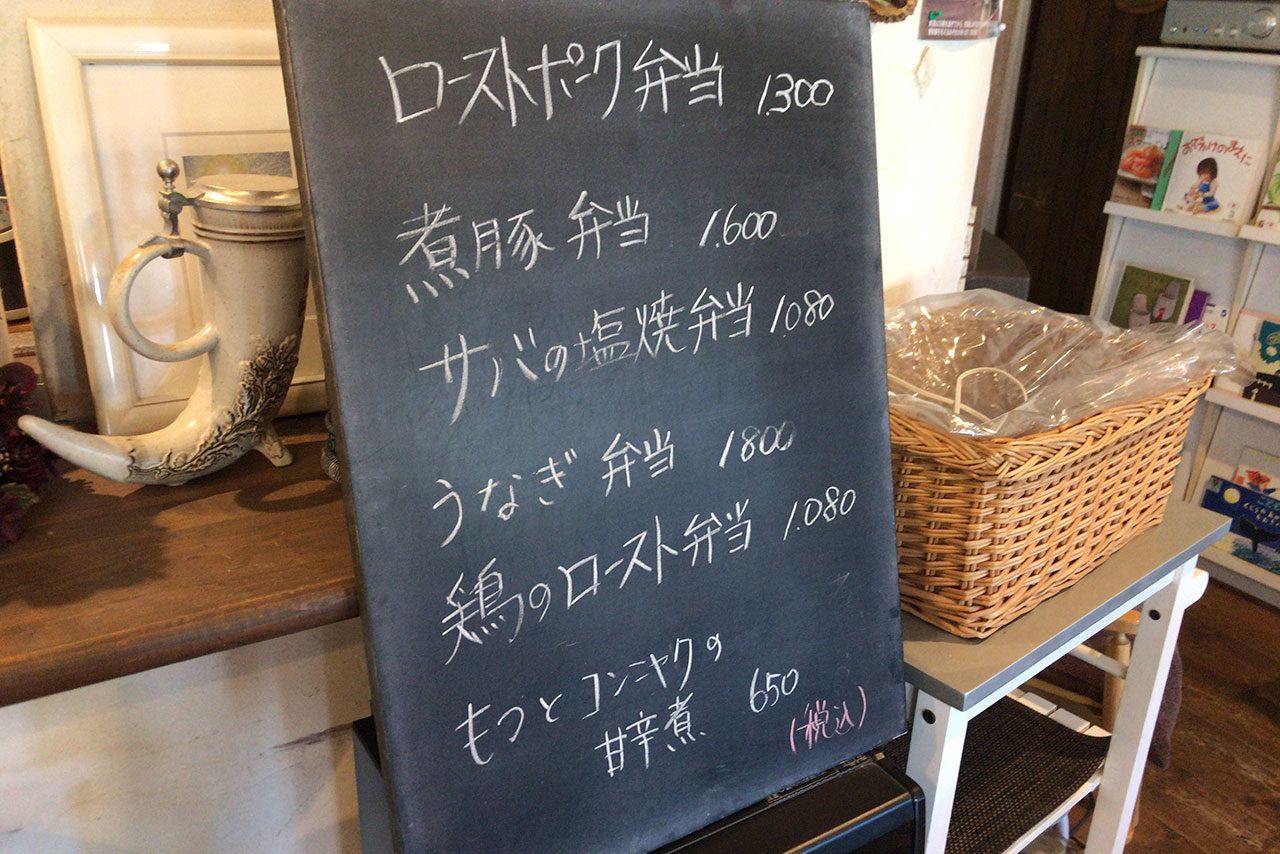 ローストポーク弁当 1.300
煮豚弁当 1.600
サバの塩焼弁当 1.080
うなぎ弁当 1800
鶏のロースト弁当 1.080
もつとコンニャクの
甘辛煮 650
(税込)
おでかけのまえに